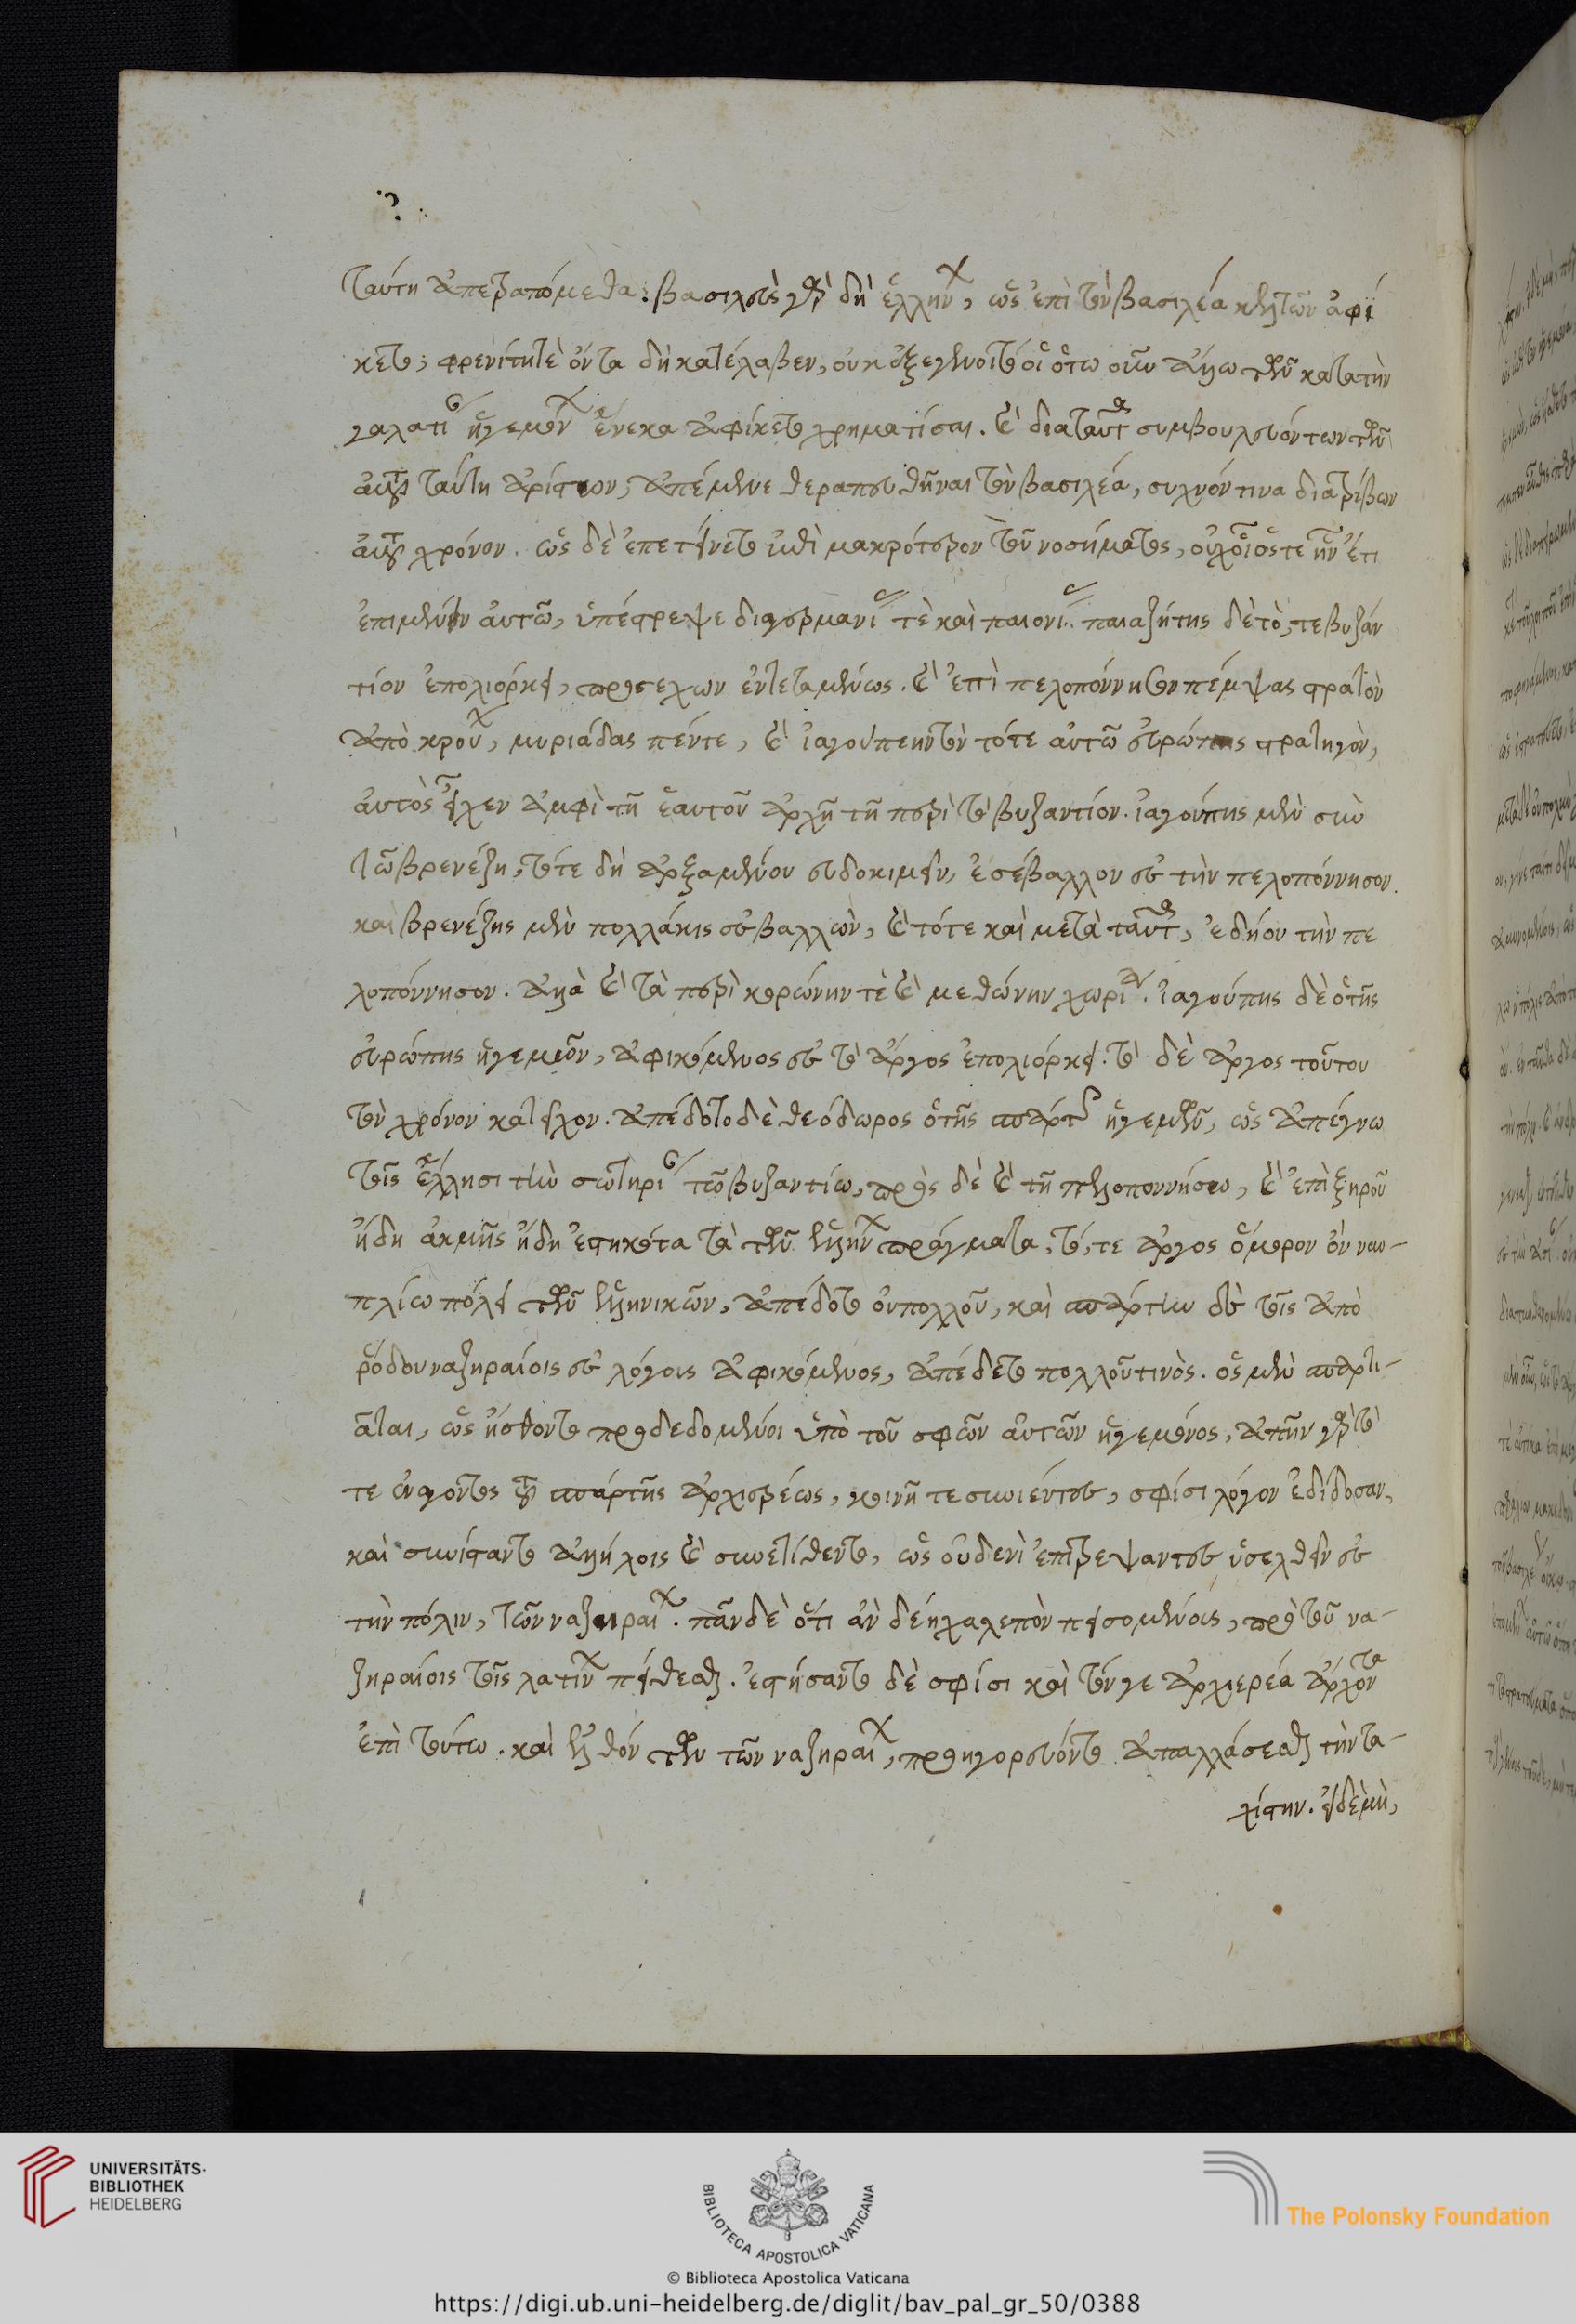 ταύτη ἀπετραπόμεθα: βασιλεὺς γὰρ δὴ ἑλλήνων, ὡς ἐπὶ τὸν βασιλέα κελτῶν ἀφί
κετο, φρενίτιτε ὄντα δὴ κατέλαβεν, οὐκ ἐξεγένοιτό οἱ ὅτω οὖν ἄλλω τῶν κατὰ τὴν
γαλατίαν ἡγεμόνων ἕνεκα ἀφίκετο χρηματίσαι. καὶ διὰ ταῦτα συμβουλευόντων τῶν
αὐτοῦ ταύτη ἀρίστων, ἀπέμενε θεραπευθῆναι τὸν βασιλέα, συχνόν τινα διατρίβων
αὐτοῦ χρόνον. ὡς δὲ ἐπετείνετο ἐπὶ μακρότερον τοῦ νοσήματος, οὐχ οἷός τε ἦν ἔτι
ἐπιμένειν αὐτῶ, ὑπέστρεψε διὰ γερμανίας τὲ καὶ παιονίας. παιαζήτης δὲ τὸ, τε βυζάν
τιον ἐπολιόρκει, προσέχων ἐντεταμένως. καὶ ἐπὶ πελοπόννησον πέμψας στρατὸν
ἀπὸ κρου, μυριάδας πέντε, καὶ ἰαγούπην τὸν τότε αὐτῶ εὐρώπης στρατηγὸν,
αὐτὸς εἶχεν ἀμφὶ τῆ ἑαυτοῦ ἀρχῆ τῆ περὶ τὸ βυζαντίον. ἰαγούπης μὲν σὺν
τῶ βρενέζη, τότε δὴ ἀρξαμένου εὐδοκιμεῖν, ἐσέβαλλον εἰς τὴν πελοπόννησον.
καὶ βρενέζης μὲν πολλάκις εἰσβαλλὼν, καὶ τότε καὶ μετὰ ταῦτα, ἐδήου τὴν πε
λοπόννησον. ἀλλὰ καὶ τὰ περὶ κορώνην τὲ καὶ μεθώνην χωρία. ἰαγούπης δὲ ὁ τῆς
εὐρώπης ἡγεμὼν, ἀφικόμενος εἰς τὸ ἄργος ἐπολιόρκει. τὸ δὲ ἄργος τοῦτον
τὸν χρόνον κατεῖχον. ἀπέδοτο δὲ θεόδωρος ὁ τῆς σπάρτης ἡγεμὼν, ὡς ἀπέγνω
τοῖς ἕλλησι τὴν σωτηρίαν τῶ βυζαντίω, πρὸς δὲ καὶ τῆ πελοποννήσω, καὶ ἐπὶ ξηροῦ
ἤδη ἀκμῆς ἤδη ἑστηκότα τὰ τῶν ἑλλήνων πράγματα, τό, τε ἄργος ὅμορον ὂν ναυ-
πλίω πόλει τῶν ἑλληνικῶν, ἀπέδοτο οὐ πολλοῦ, καὶ σπάρτην δὲ τοῖς ἀπὸ
ῥόδου ναζηραίοις εἰς λόγοις ἀφικόμενος, ἀπέδετο πολλοῦ τινὸς. οἱ μὲν σπαρτι-
ᾶται, ὡς ἤσθοντο προδεδομένοι ὑπὸ τοῦ σφῶν αὐτῶν ἡγεμόνος, ἀπῆν γὰρ τὸ
τε ἐνάγοντος τοῦ σπάρτης ἀρχιερέως, κοινῆ τε συνιέντες, σφίσι λόγον ἐδίδοσαν,
καὶ συνίσταντο ἀλλήλοις καὶ συνετίθεντο, ὡς οὐδενὶ ἐπιτρεψαντες ἐισελθεῖν εἰς
τὴν πόλιν, τῶν ναζηραίων. πᾶν δὲ ὅτι ἂν δέη χαλεπὸν πεισομένοις, πρὸ τοῦ να-
ζηραίοις τοῖς λατίνων πείθεσθαι. ἐστήσαντο δὲ σφίσι καὶ τόν γε ἀρχιερέα ἄρχοντα
ἐπὶ τούτω. καὶ ἐλθόντων τῶν ναζηραίων, προηγορεύοντο ἀπαλλάσεσθαι τὴν τα-
χίστην. εἰ δὲ μὴ,
UNIVERSITÄTS-
BIBLIOTHEK
HEIDELBERG
BIBLIOTECA APOSTOLICA VATICANA
The Polonsky Foundation
© Biblioteca Apostolica Vaticana
https://digi.ub.uni-heidelberg.de/diglit/bav_pal_gr_50/0388